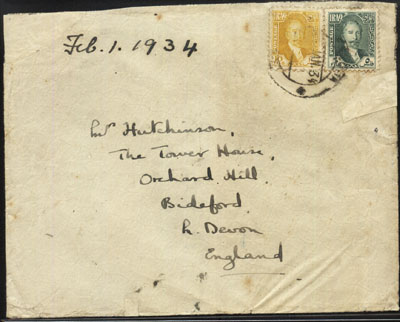 Feb. 1. 1934
IRAQ
POSTAGE
Mr Hutchinson,
The Tower House,
Orchard Hill,
Bideford,
N. Devon
England